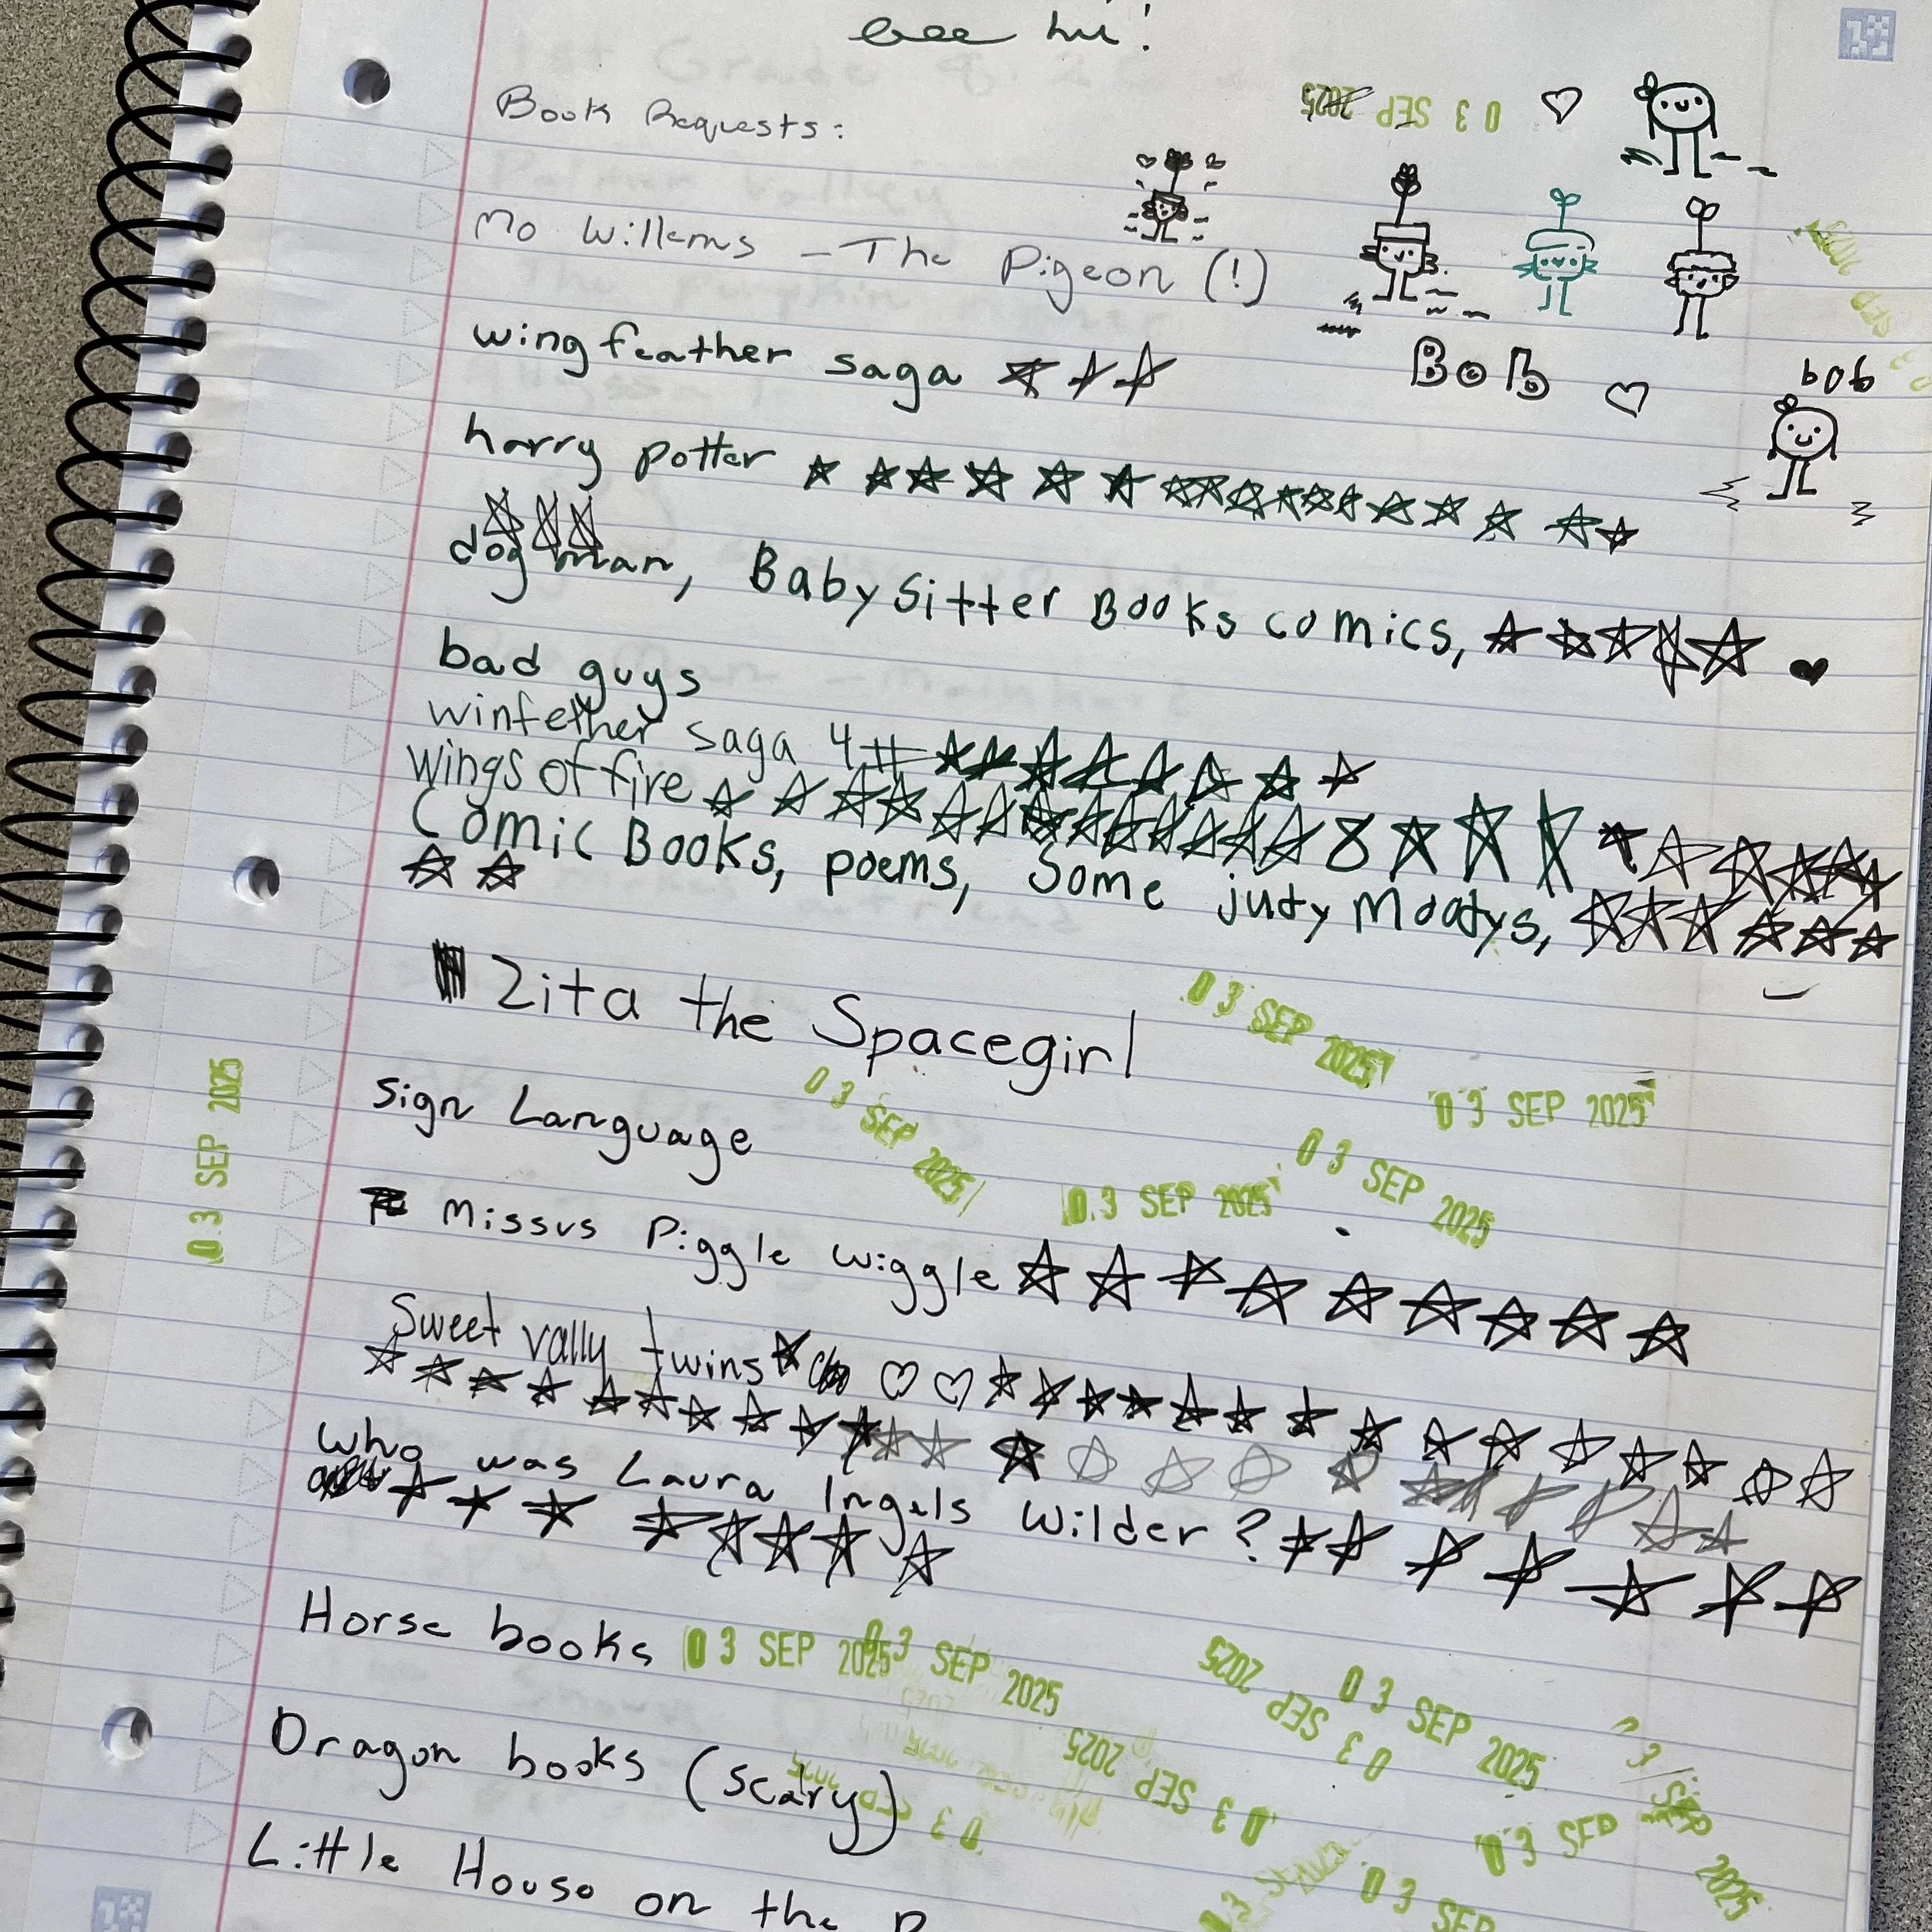 hi!
Book Requests:
03 SEP 2025
Mo Willems - The Pigeon (!)
Bob
bob
wing feather saga
harry potter
dog man, BabySitter Books comics,
bad guys
winfether saga 4#
wings of fire
Comic Books, poems, Some judy Moodys,
Zita the Spacegirl
03 SEP 2025
03 SEP 2025
Sign Language
03 SEP 2025
03 SEP 2025
03 SEP 2025
03 SEP 2025
Missus Piggle wiggle
Sweet vally twins
who was Laura Ingels Wilder?
Horse books
03 SEP 2025
03 SEP 2025
03 SEP 2025
03 SEP 2025
Dragon books (scary)
03 SEP 2025
03 SEP 2025
03 SEP 2025
Little House on the P
03 SEP